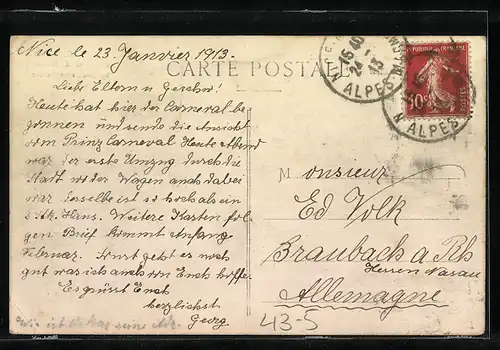 Nice le 23. Janvier 1913.
CARTE POSTALE
Liebe Eltern u Geschw!
Heute hat hier der Carneval be
gonnen und sende die Ansicht
vom Prinz Carneval Heute Abend
war der erste Umzug durch die
Stadt wo der Wagen auch dabei
war derselbe ist so hoch als ein
2 stk. Haus. Weitere Karten fol
gen Brief kommt Anfangs
Februar. Sonst geht es noch
gut was ich auch von Euch hoffe
Es grüsst Euch
herzlichst
Georg
Monsieur
Ed Volk
Braubach a Rh
Hessen Nassau
Allemagne
43-5
REPUBLIQUE FRANÇAISE
10c
POSTES
15 40
24 - 1
13
ALPES
ALPES